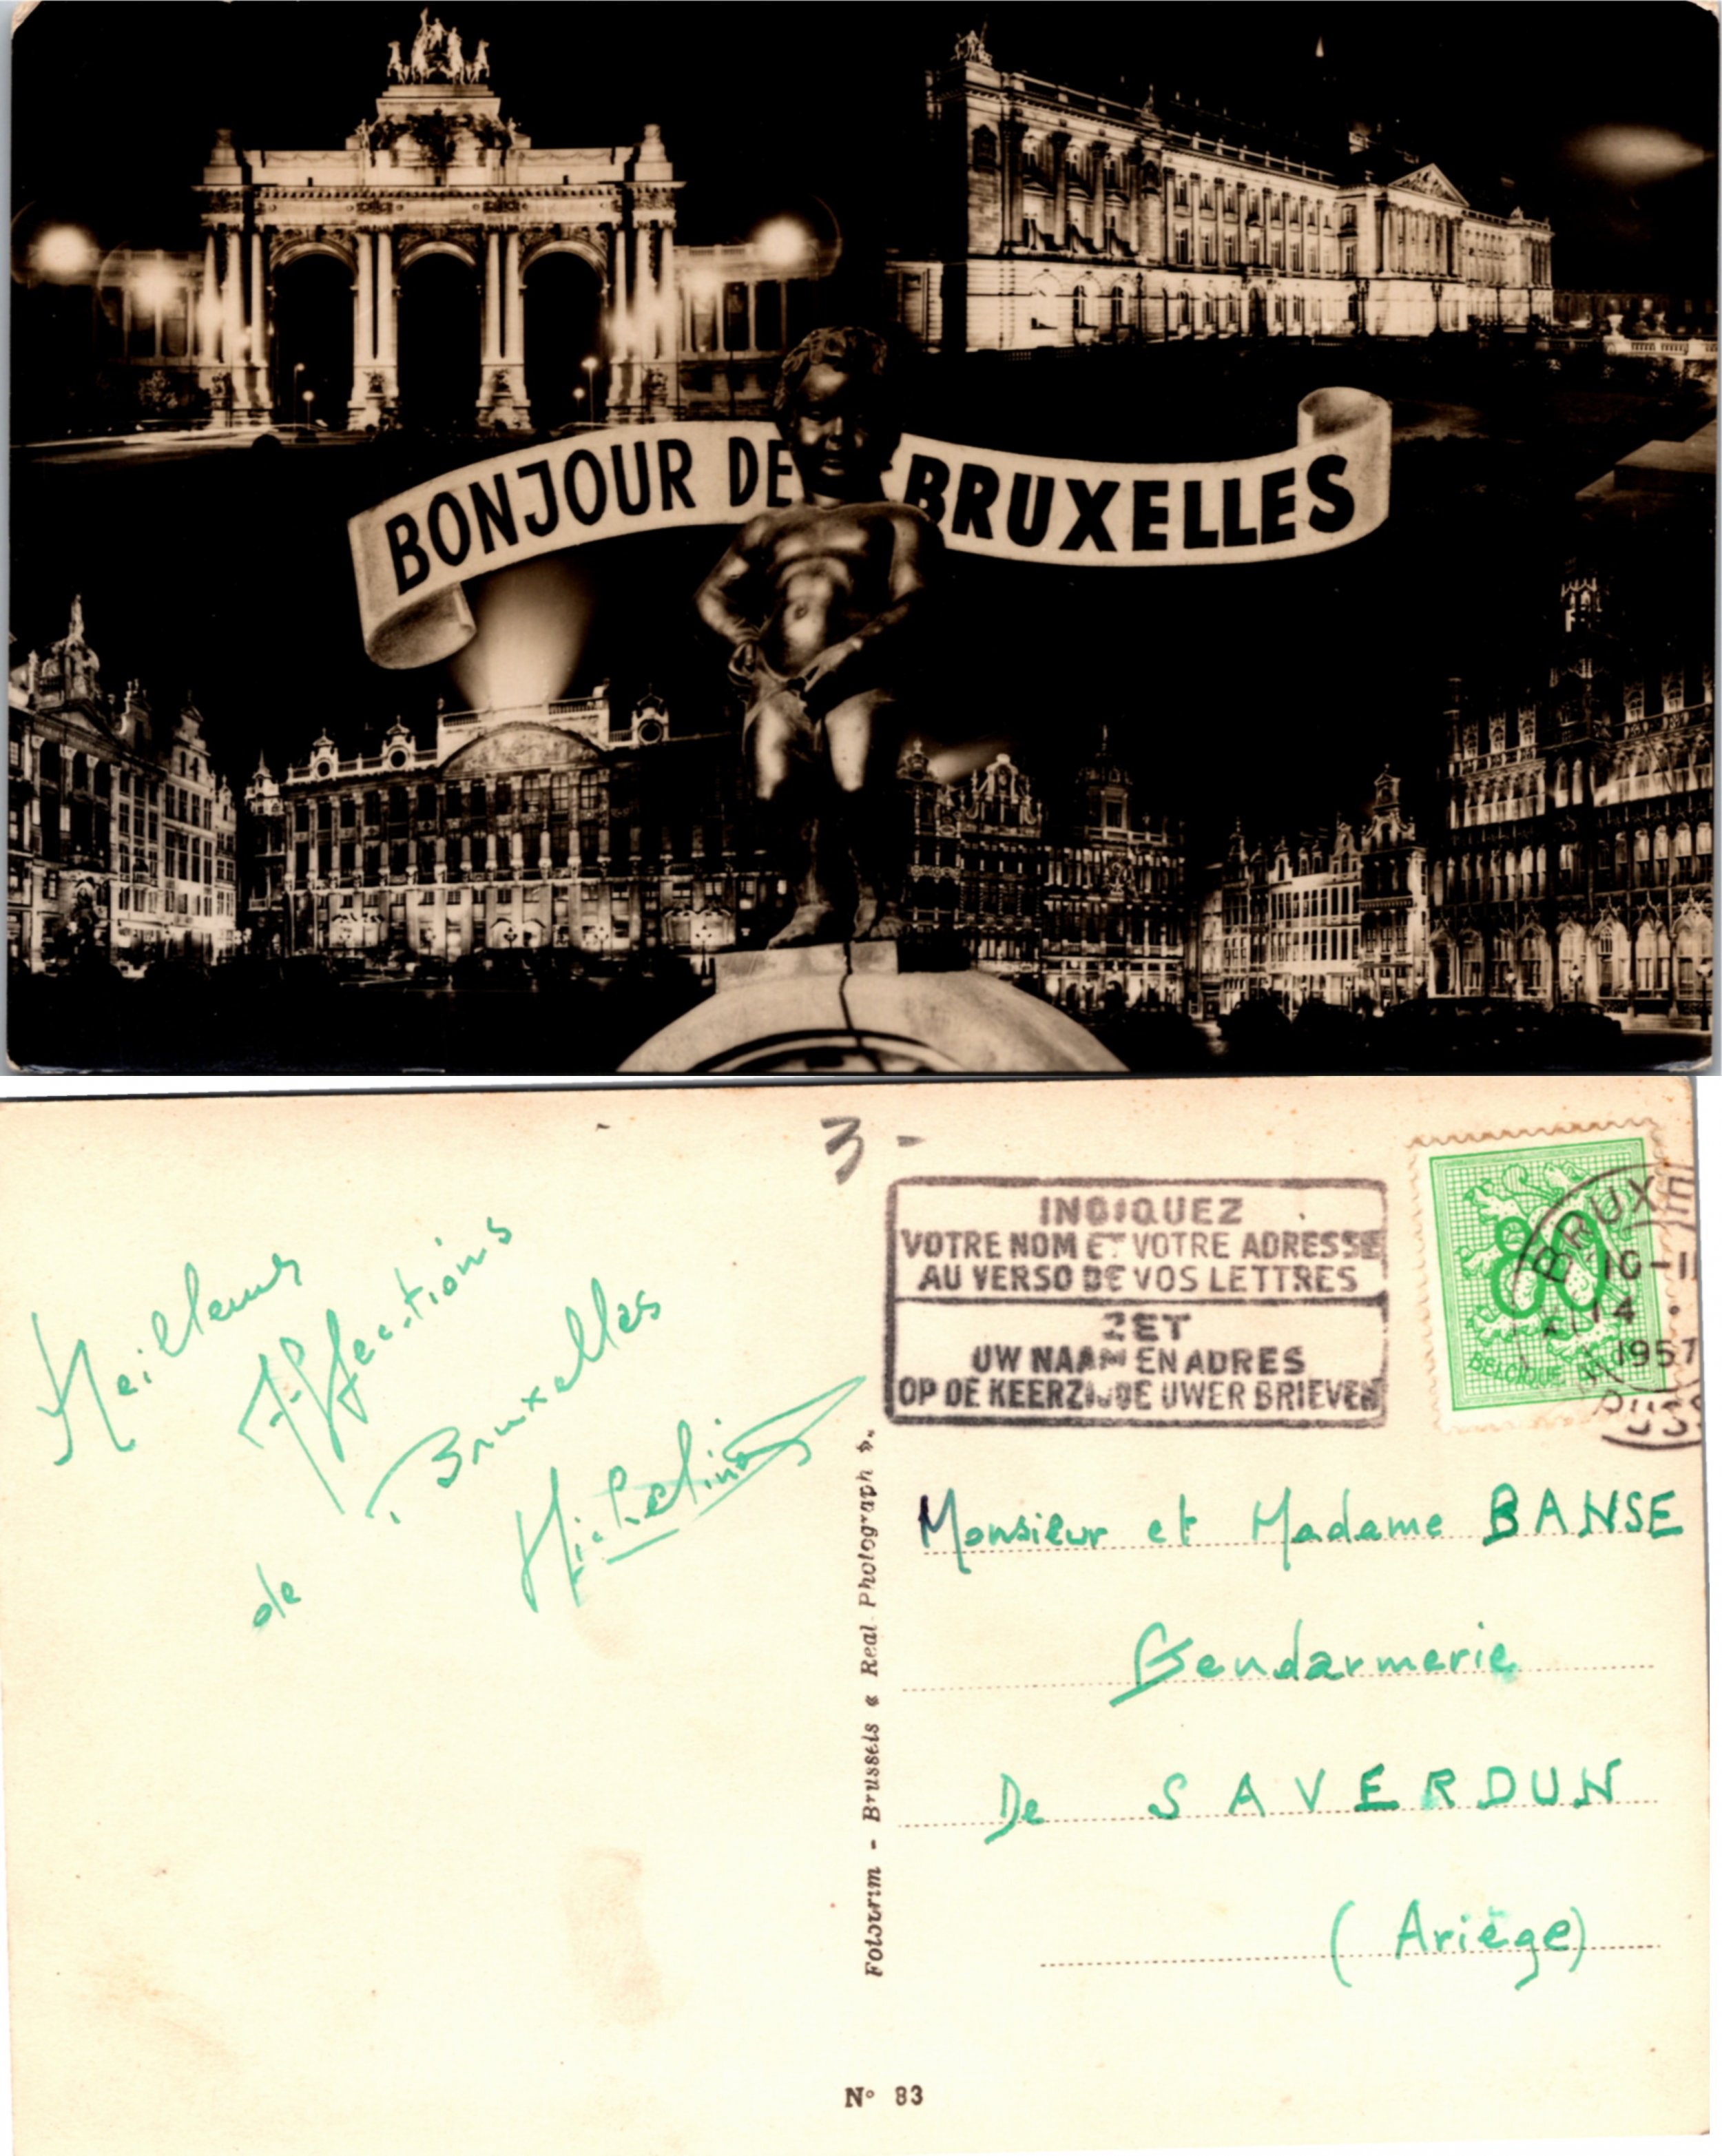 BONJOUR DE BRUXELLES
3 -
INDIQUEZ
VOTRE NOM ET VOTRE ADRESSE
AU VERSO DE VOS LETTRES
ZET
UW NAAM EN ADRES
OP DE KEERZIJDE UWER BRIEVEN
80
BELGIQUE
BRUX
10-11
14
1957
Meilleures
Affections
de Bruxelles
Micheline
Monsieur et Madame BANSE
Gendarmerie
De SAVERDUN
(Ariège)
Fotoprim - Brussels « Real Photograph ».
N° 83